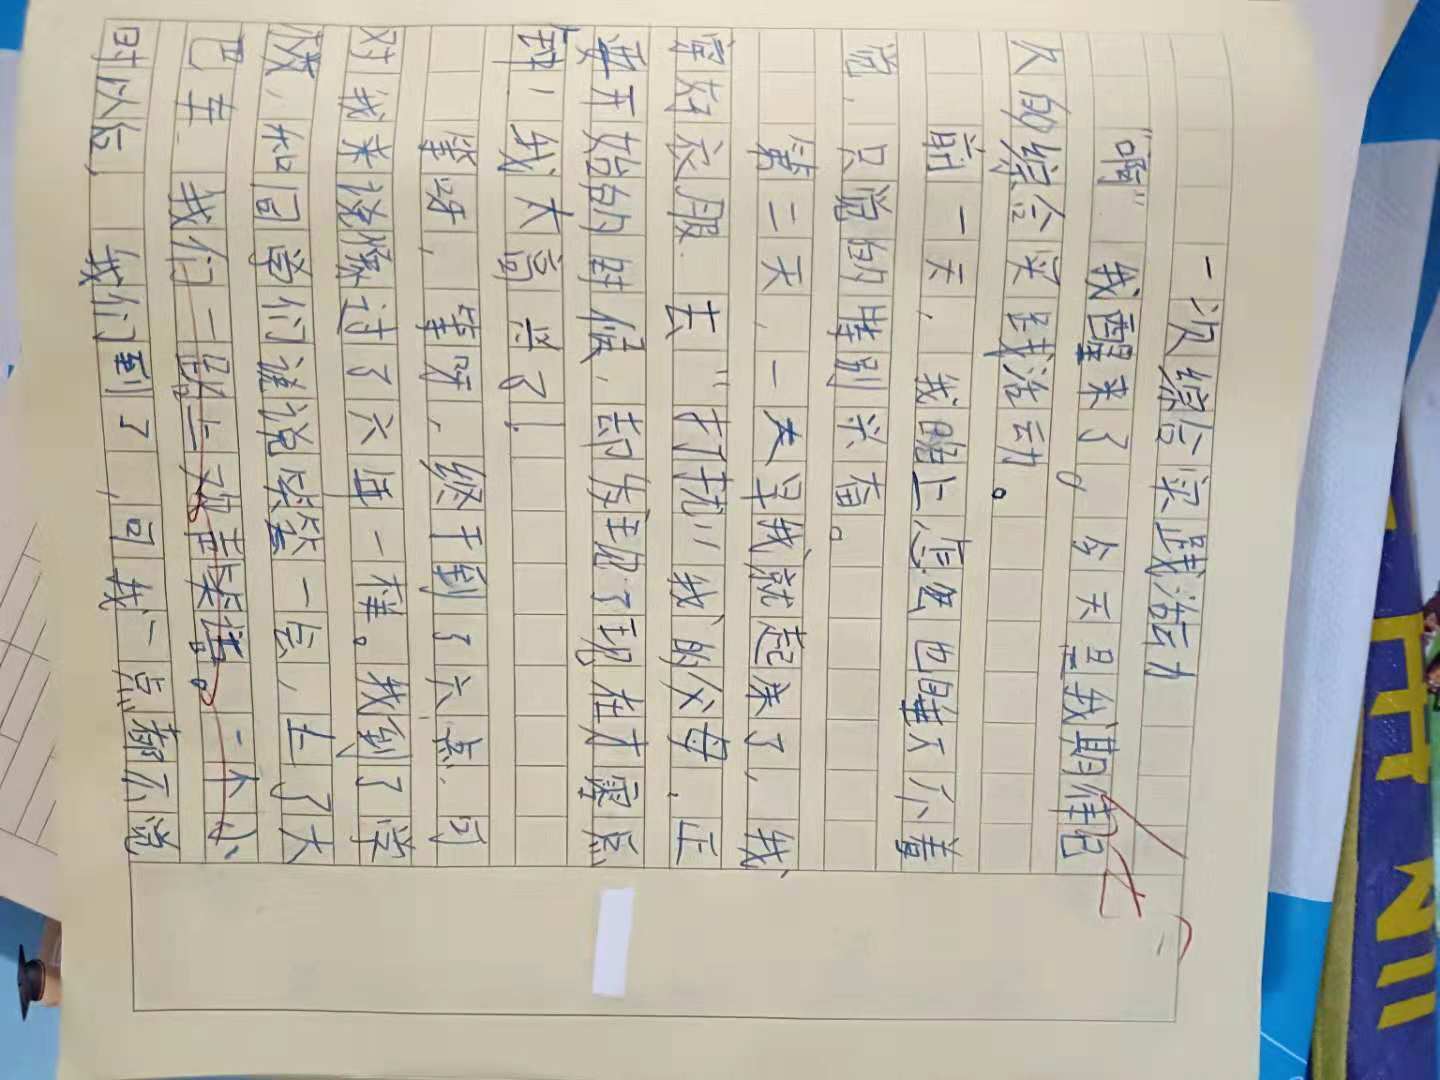 一次综合实践活动
"啊"我醒来了。今天是我期待已
久的综合实践活动。
前一天，我晚上怎么也睡不着
觉，只觉的特别兴奋。
第二天，一大早我就起来了，我
穿好衣服去"打扰"我的父母，正
要开始的时候，却发现了现在才零点
钟，我太高兴了！
等呀，等呀，终于到了六点，可
对我来说像过了六年一样。我到了学
校，和同学们说说笑笑一会，上了大
巴车我们一路上欢声笑语。一个小
时以后我们到了，可我一点都不觉